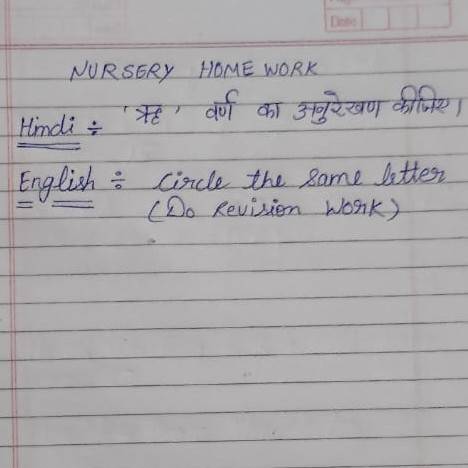 Date
NURSERY HOME WORK
Hindi ÷ 'ऋ' वर्ण का अनुरेखण कीजिए।
English ÷ Circle the same letter
(Do Revision Work)